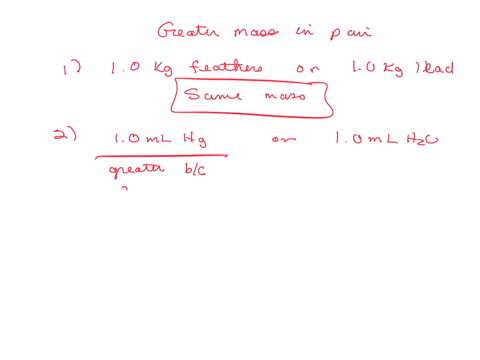 Greater mass in pair
1) 1.0 Kg feathers or 1.0 Kg lead
Same mass
2) 1.0 mL Hg or 1.0 mL H2O
greater b/c